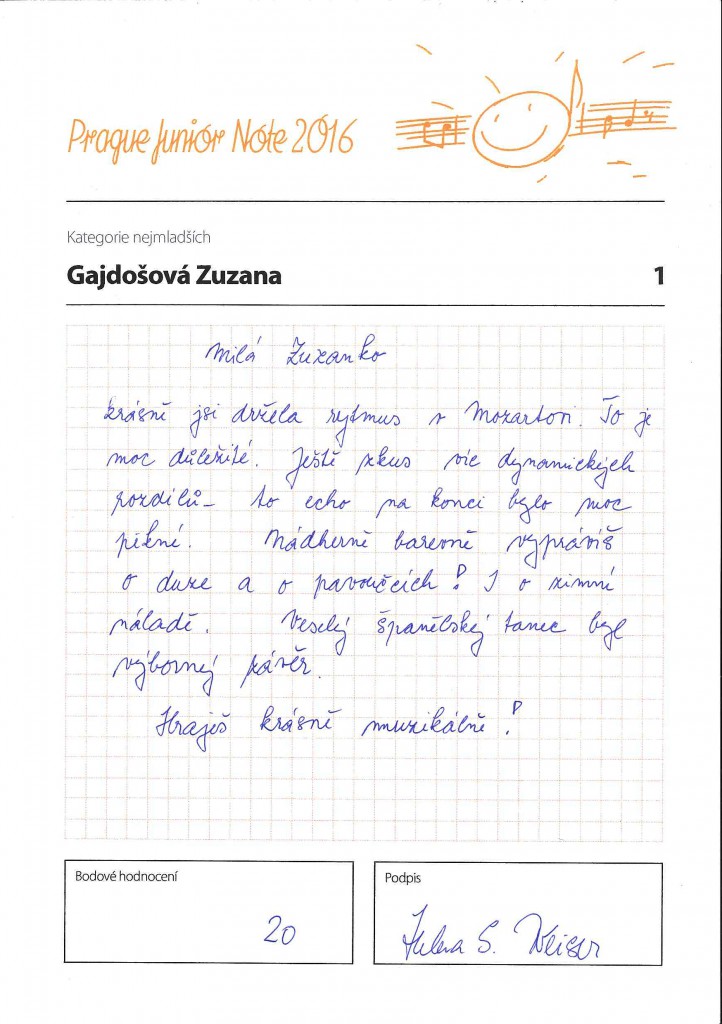 Prague Junior Note 2016
Kategorie nejmladších
Gajdošová Zuzana 1
Milá Zuzanko
krásně jsi držela rytmus v Mozartovi. To je
moc důležité. Ještě zkus víc dynamických
rozdílů – to echo na konci bylo moc
pěkné. Nádherně barevně vyprávíš
o duze a o pavoučcích! I o zimní
náladě. Veselý španělský tanec byl
výborný závěr.
Hraješ krásně muzikálně!
Bodové hodnocení
Podpis
20
S. Weiser